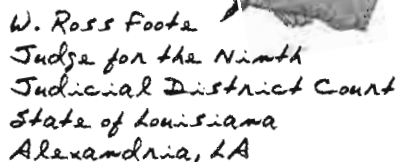 W. Ross Foote
Judge for the Ninth
Judicial District Court
State of Louisiana
Alexandria, LA